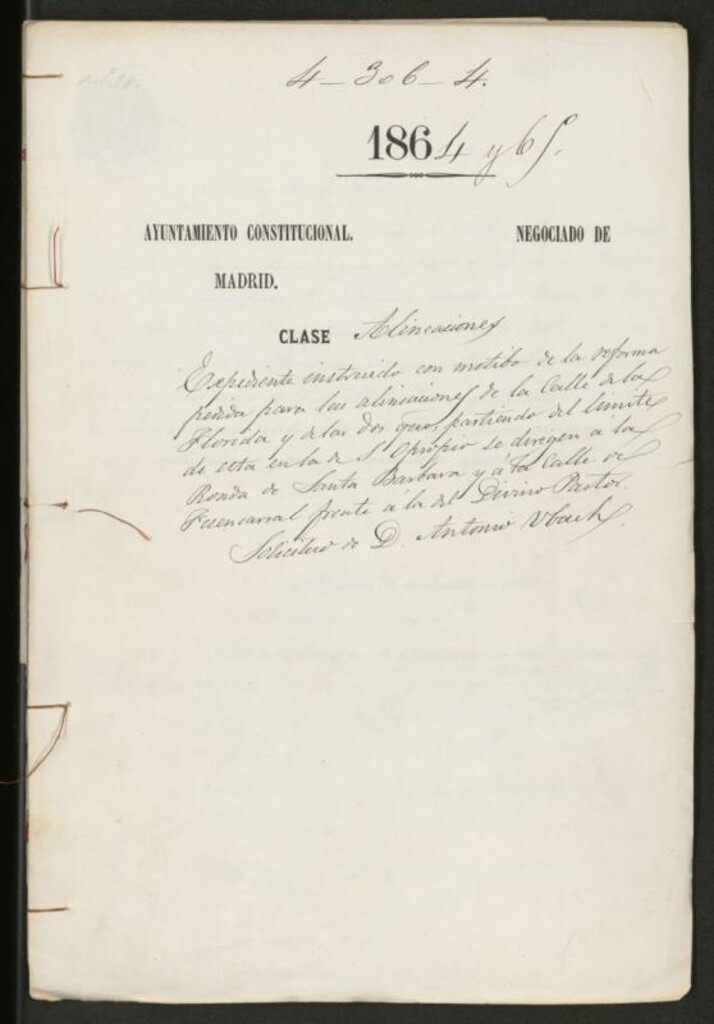 4-306-4.
1864 y 65.
AYUNTAMIENTO CONSTITUCIONAL. NEGOCIADO DE
MADRID.
CLASE Alineaciones
Expediente instruido con motibo de la reforma
pedida para las alineaciones de la Calle de la
Florida y de las dos que, partiendo del limite
de esta en la de S. Opropio se dirigen a la
Ronda de Santa Barbara y á la Calle de
Fuencarral frente á la del Divino Pastor.
Solicitud de D. Antonio Ubach.